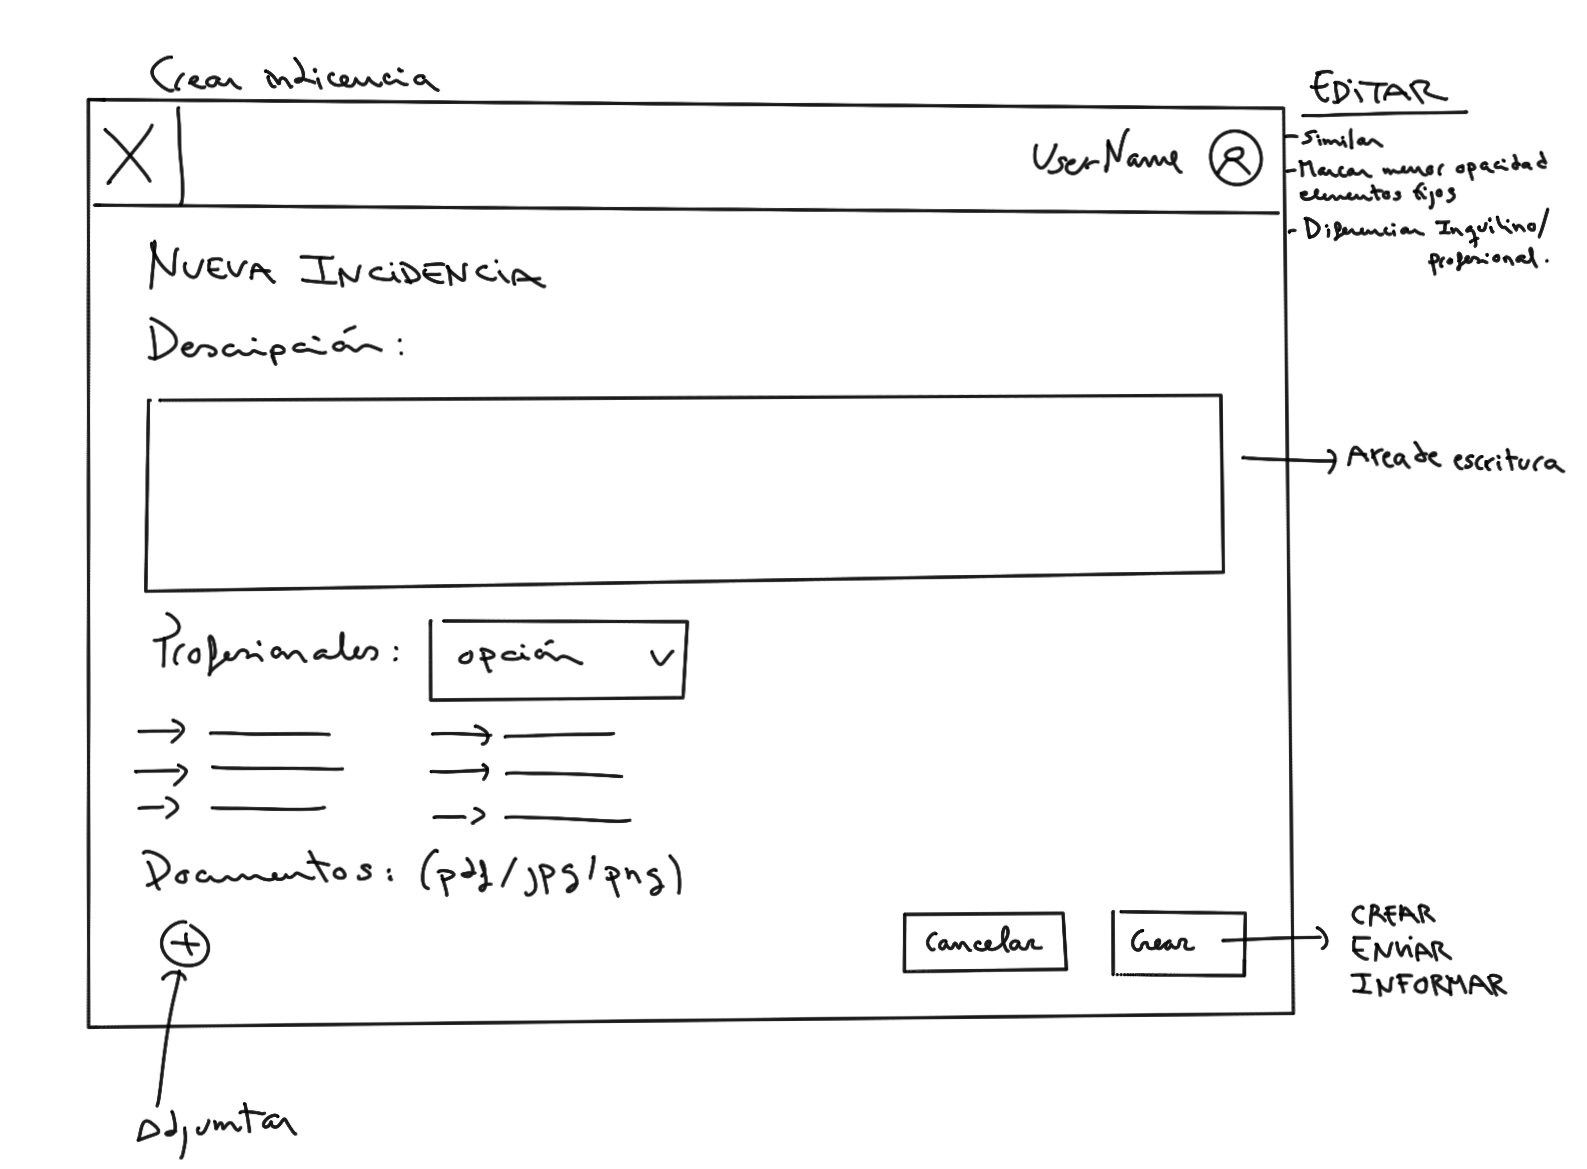 Crear indicencia
EDITAR
UserName
- Similar
- Marcar menor opacidad
elementos fijos
- Diferenciar Inquilino/
profesional.
NUEVA INCIDENCIA
Descripción:
Area de escritura
Profesionales:
opción
Documentos: (pdf/jpg/png)
Cancelar
Crear
CREAR
ENVIAR
INFORMAR
Adjuntar